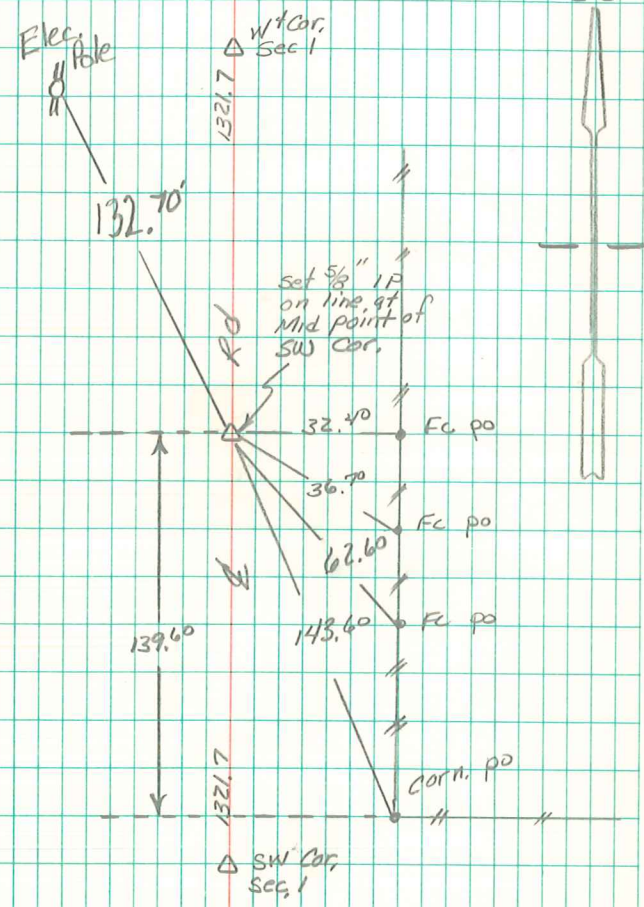 Elec.
Pole
W¼ Cor.
Sec 1
1321.7
132.70'
set 5/8" IP
on line at
Mid point of
SW Cor.
Rd
32.40
Fc. po
36.70
Fc po
62.60
℄
Fc po
143.60
139.60
1321.7
Corn. po
SW Cor,
Sec, 1